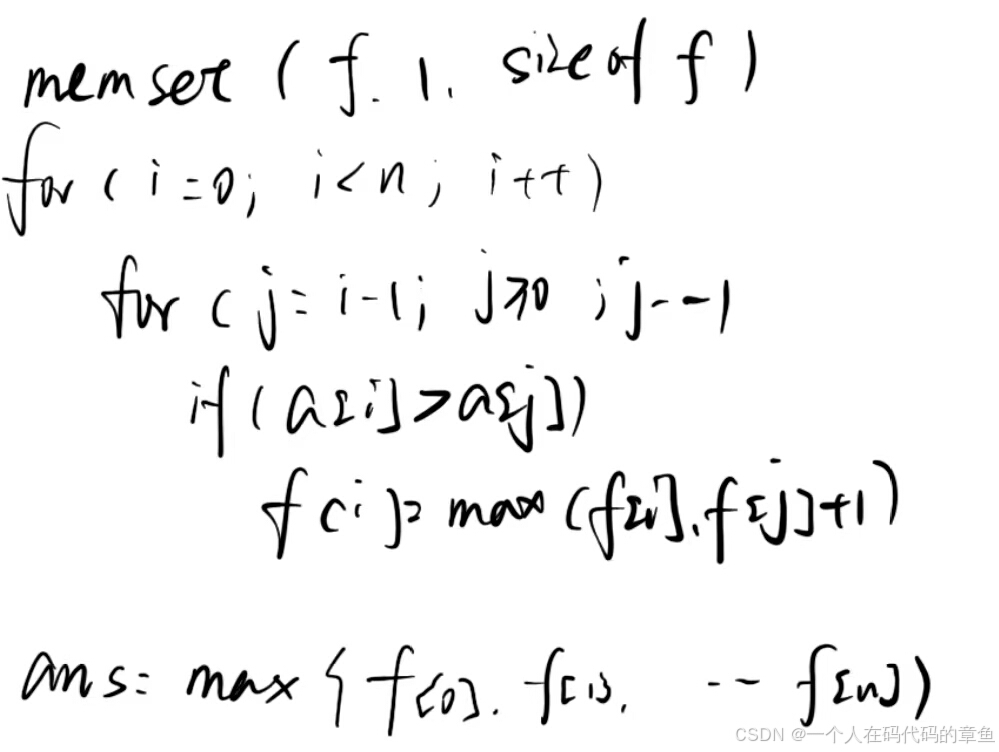 memset ( f. 1. sizeof f )
for ( i=0; i<n; i++)
for ( j= i-1; j≥0 ; j--1
if (a[i]>a[j])
f[i]= max (f[i].f[j]+1)
ans= max { f[0]. f[1]. -- f[n])
CSDN @一个人在码代码的章鱼